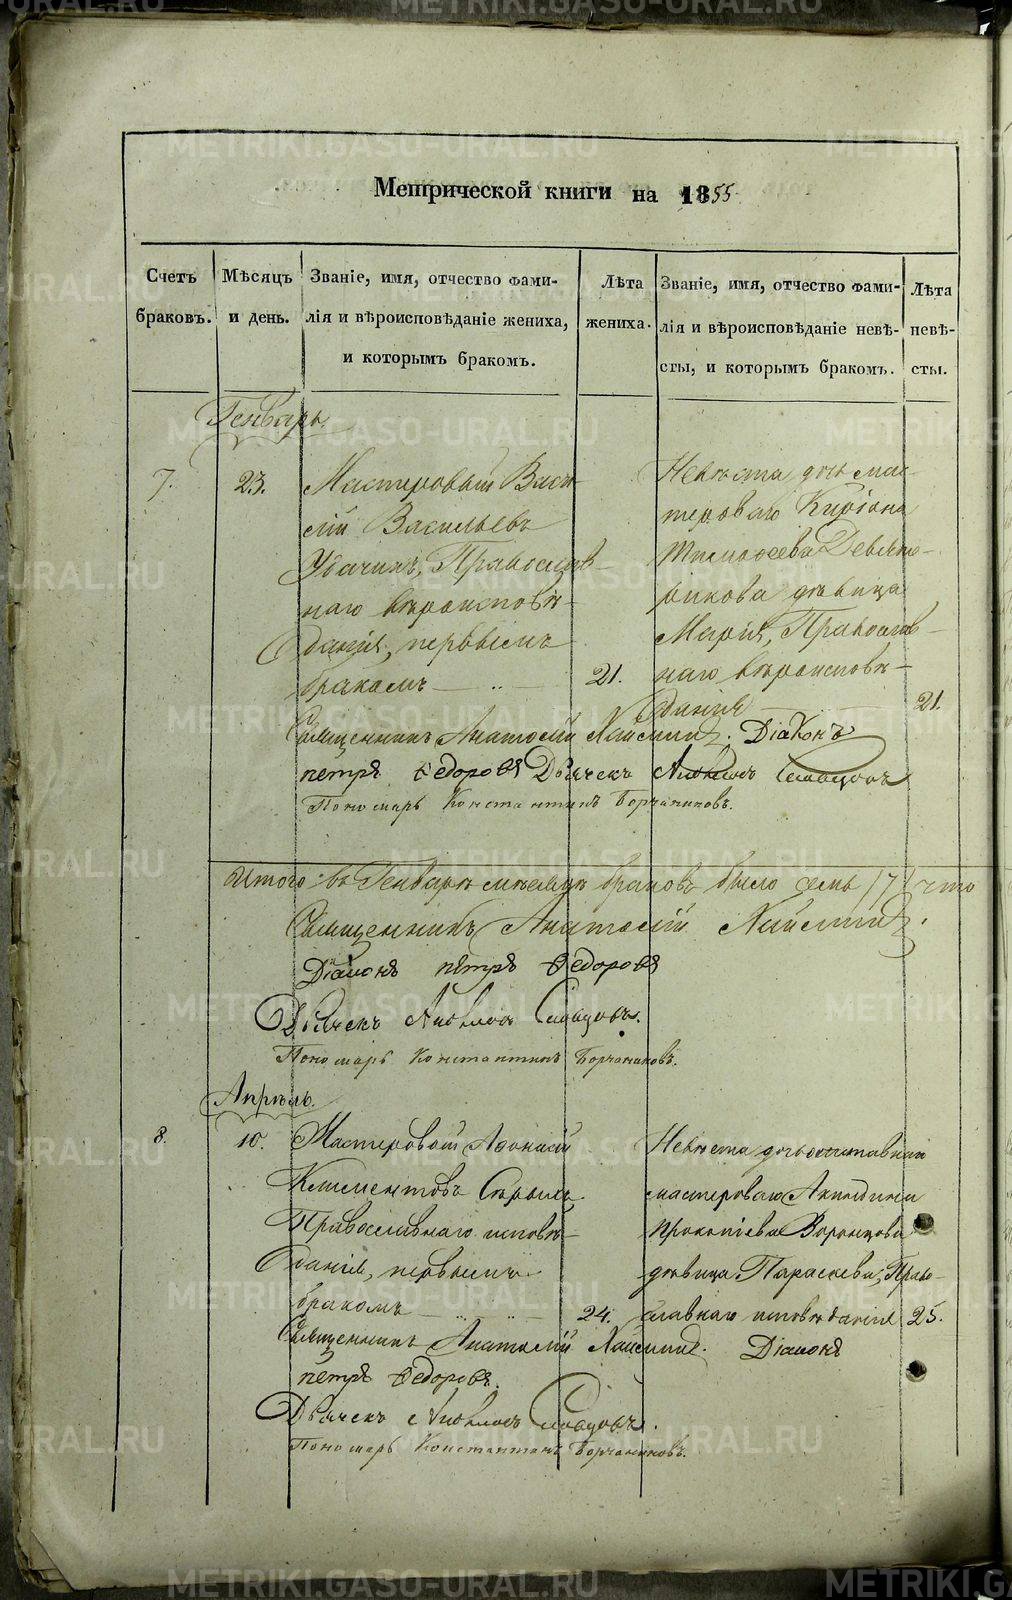 Метрической книги на 1855
Счетъ браковъ.
Мѣсяцъ и день.
Званіе, имя, отчество фами-
лія и вѣроисповѣданіе жениха,
и которымъ бракомъ.
Лѣта жениха.
Званіе, имя, отчество фами-
лія и вѣроисповѣданіе невѣ-
сты, и которымъ бракомъ.
Лѣта невѣ-
сты.
Генварь.
7.
23.
Мастеровый Васи-
лій Васильевъ
Православ-
наго вѣроисповѣ-
данія, первымъ
бракомъ
21.
Невѣста дочь мас-
тероваго Киріяна
Тимофеева Девят-
рикова дѣвица
Марія, Православ-
наго вѣроисповѣ-
данія
21.
Священникъ Анатолій Діаконъ
Петръ Федоровъ Дьячекъ Словцовъ
Пономарь Константинъ Борчаниновъ.
Итого въ Генварѣ мѣсяцѣ браковъ было семь /7/ что
Священникъ Анатолій
Діаконъ Петръ Федоровъ
Дьячекъ Словцовъ.
Пономарь Константинъ Борчаниновъ.
Апрѣль.
8.
10.
Мастеровой Афонасій
Климентовъ
Православнаго исповѣ-
данія, первымъ
бракомъ
24.
Невѣста дочь отставнаго
мастероваго Акиндина
Прокопіева Воронцова
дѣвица Параскева, Право-
славнаго исповѣданія
25.
Священникъ Анатолій Діаконъ
Петръ Федоровъ.
Дьячекъ Словцовъ.
Пономарь Константинъ Борчаниновъ.
METRIKI.GASO-URAL.RU